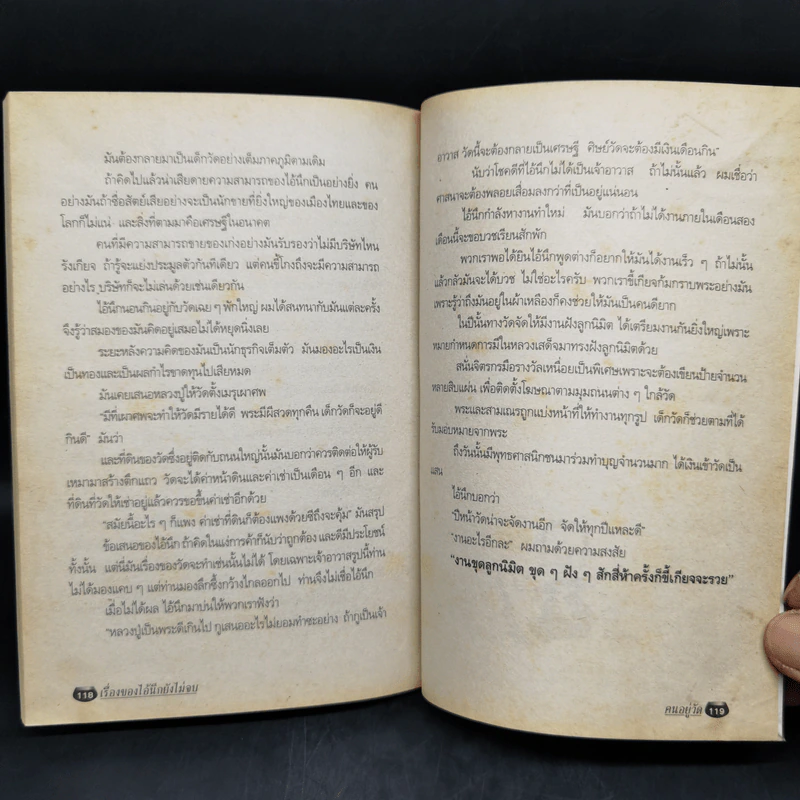 มันต้องกลายมาเป็นเด็กวัดอย่างเต็มภาคภูมิตามเดิม
ถ้าคิดไปแล้วน่าเสียดายความสามารถของไอ้นึกเป็นอย่างยิ่ง คน
อย่างมันถ้าซื่อสัตย์เสียอย่างจะเป็นนักขายที่ยิ่งใหญ่ของเมืองไทยและของ
โลกก็ไม่แน่ และสิ่งที่ตามมาคือเศรษฐีในอนาคต
คนที่มีความสามารถขายของเก่งอย่างมันรับรองว่าไม่มีบริษัทไหน
รังเกียจ ถ้ารู้จะแย่งประมูลตัวกันทีเดียว แต่คนขี้โกงถึงจะมีความสามารถ
อย่างไร บริษัทก็จะไม่เล่นด้วยเช่นเดียวกัน
ไอ้นึกนอนกินอยู่กับวัดเฉย ๆ พักใหญ่ ผมได้สนทนากับมันแต่ละครั้ง
จึงรู้ว่าสมองของมันคิดอยู่เสมอไม่ได้หยุดนิ่งเลย
ระยะหลังความคิดของมันเป็นนักธุรกิจเต็มตัว มันมองอะไรเป็นเงิน
เป็นทองและเป็นผลกำไรขาดทุนไปเสียหมด
มันเคยเสนอหลวงปู่ให้วัดตั้งเมรุเผาศพ
"มีที่เผาศพจะทำให้วัดมีรายได้ดี พระมีผีสวดทุกคืน เด็กวัดก็จะอยู่ดี
กินดี" มันว่า
และที่ดินของวัดซึ่งอยู่ติดกับถนนใหญ่นั้นมันบอกว่าควรติดต่อให้ผู้รับ
เหมามาสร้างตึกแถว วัดจะได้ค่าหน้าดินและค่าเช่าเป็นเดือน ๆ อีก และ
ที่ดินที่วัดให้เช่าอยู่แล้วควรขอขึ้นค่าเช่าอีกด้วย
"สมัยนี้อะไร ๆ ก็แพง ค่าเช่าที่ดินก็ต้องแพงด้วยซีถึงจะคุ้ม" มันสรุป
ข้อเสนอของไอ้นึก ถ้าคิดในแง่การค้าก็นับว่าถูกต้อง และดีมีประโยชน์
ทั้งนั้น แต่นี่มันเรื่องของวัดจะทำเช่นนั้นไม่ได้ โดยเฉพาะเจ้าอาวาสรูปนี้ท่าน
ไม่ได้มองแคบ ๆ แต่ท่านมองลึกซึ้งกว้างไกลออกไป ท่านจึงไม่เชื่อไอ้นึก
เมื่อไม่ได้ผล ไอ้นึกมาบ่นให้พวกเราฟังว่า
"หลวงปู่เป็นพระดีเกินไป กูเสนออะไรไม่ยอมทำซะอย่าง ถ้ากูเป็นเจ้า
118 เรื่องของไอ้นึกยังไม่จบ
อาวาส วัดนี้จะต้องกลายเป็นเศรษฐี ศิษย์วัดจะต้องมีเงินเดือนกิน"
นับว่าโชคดีที่ไอ้นึกไม่ได้เป็นเจ้าอาวาส ถ้าไม่นั้นแล้ว ผมเชื่อว่า
ศาสนาจะต้องพลอยเสื่อมลงกว่าที่เป็นอยู่แน่นอน
ไอ้นึกกำลังหางานทำใหม่ มันบอกว่าถ้าไม่ได้งานภายในเดือนสอง
เดือนนี้จะขอบวชเรียนสักพัก
พวกเราพอได้ยินไอ้นึกพูดต่างก็อยากให้มันได้งานเร็ว ๆ ถ้าไม่นั้น
แล้วกลัวมันจะได้บวช ไม่ใช่อะไรครับ พวกเราขี้เกียจก้มกราบพระอย่างมัน
เพราะรู้ว่าถึงมันอยู่ในผ้าเหลืองก็คงช่วยให้มันเป็นคนดียาก
ในปีนั้นทางวัดจัดให้มีงานฝังลูกนิมิต ได้เตรียมงานกันยิ่งใหญ่เพราะ
หมายกำหนดการมีในหลวงเสด็จมาทรงฝังลูกนิมิตด้วย
สนั่นจิตรกรมือรางวัลเหนื่อยเป็นพิเศษเพราะจะต้องเขียนป้ายจำนวน
หลายสิบแผ่น เพื่อติดตั้งโฆษณาตามมุมถนนต่าง ๆ ใกล้วัด
พระและสามเณรถูกแบ่งหน้าที่ให้ทำงานทุกรูป เด็กวัดก็ช่วยตามที่ได้
รับมอบหมายจากพระ
ถึงวันนั้นมีพุทธศาสนิกชนมาร่วมทำบุญจำนวนมาก ได้เงินเข้าวัดเป็น
แสน
ไอ้นึกบอกว่า
"ปีหน้าวัดน่าจะจัดงานอีก จัดให้ทุกปีแหละดี"
"งานอะไรอีกละ" ผมถามด้วยความสงสัย
"งานขุดลูกนิมิต ขุด ๆ ฝัง ๆ สักสี่ห้าครั้งก็ขี้เกียจจะรวย"
คนอยู่วัด 119